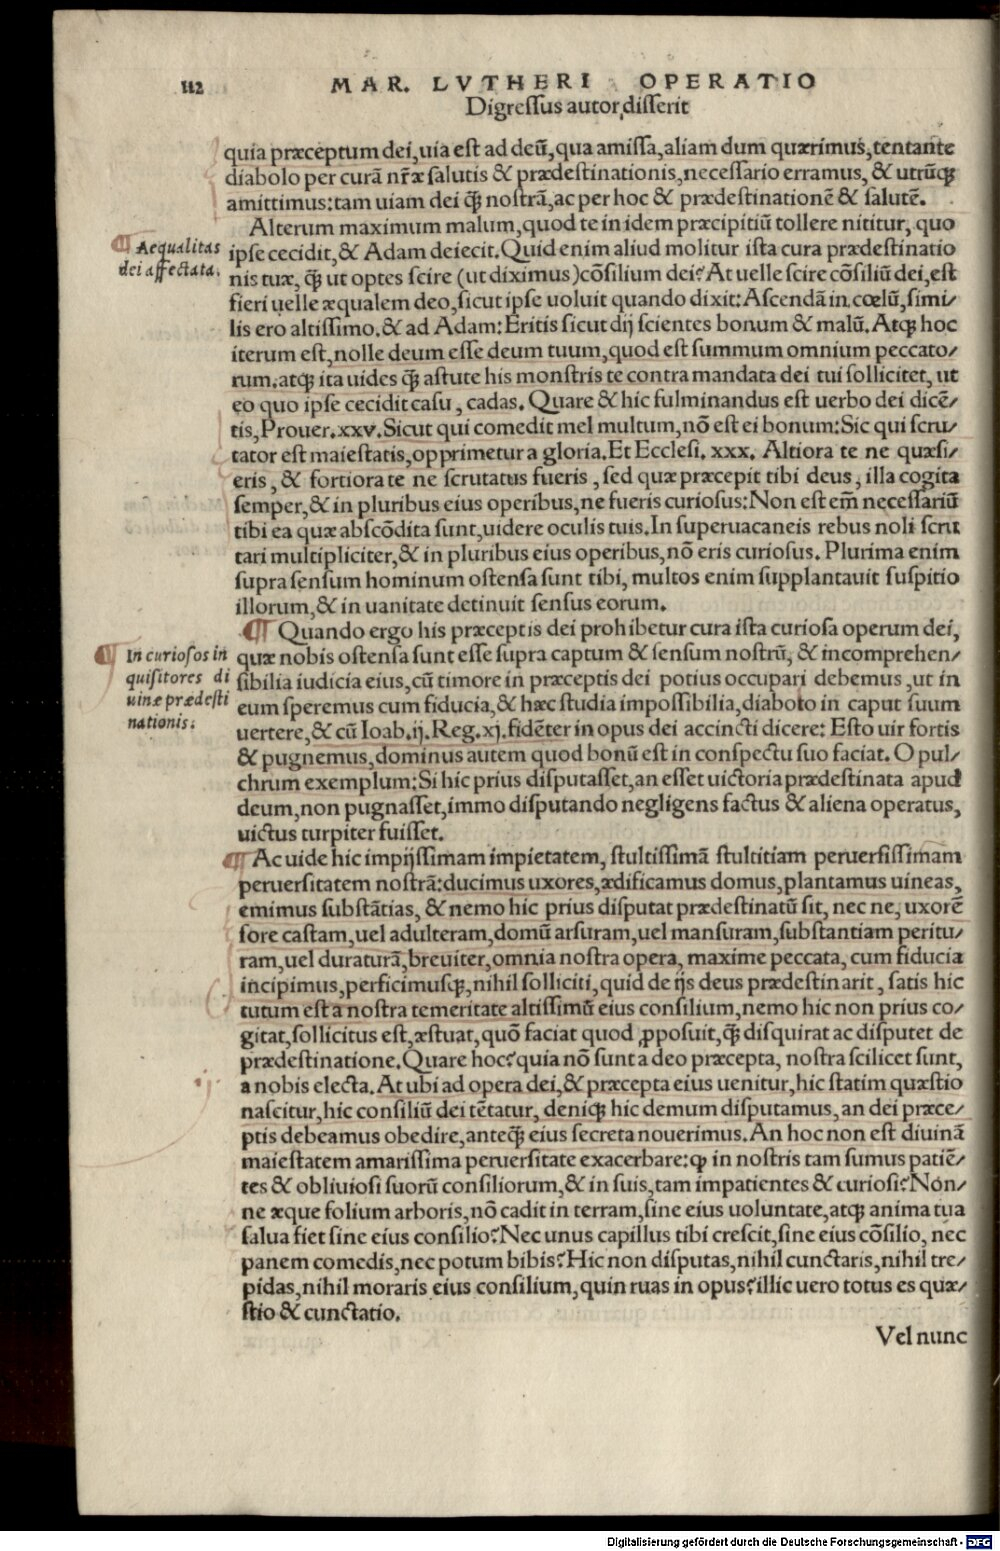 112 MAR. LVTHERI OPERATIO
Digreſſus autor diſſerit
quia præceptum dei, uia eſt ad deū, qua amiſſa, aliam dum quærimus, tentante
diabolo per curā nr̄æ ſalutis & prædeſtinationis, neceſſario erramus, & utrūq;
amittimus: tam uiam dei q̃; noſtrā, ac per hoc & prædeſtinationē & ſalutē.
Alterum maximum malum, quod te in idem præcipitiū tollere nititur, quo
Aequalitas
dei affectata.
ipſe cecidit, & Adam deiecit. Quid enim aliud molitur iſta cura prædeſtinatio
nis tuæ, q̃; ut optes ſcire (ut diximus) cōſilium dei? At uelle ſcire cōſiliū dei, eſt
fieri uelle æqualem deo, ſicut ipſe uoluit quando dixit: Aſcendā in cœlū, ſimi/
lis ero altiſſimo. & ad Adam: Eritis ſicut dij ſcientes bonum & malū. Atq; hoc
iterum eſt, nolle deum eſſe deum tuum, quod eſt ſummum omnium peccato/
rum. atq; ita uides q̃; aſtute his monſtris te contra mandata dei tui ſollicitet, ut
eo quo ipſe cecidit caſu, cadas. Quare & hic fulminandus eſt uerbo dei dicē/
tis, Prouer. xxv. Sicut qui comedit mel multum, nō eſt ei bonum: Sic qui ſcru/
tator eſt maieſtatis, opprimetur a gloria. Et Eccleſi. xxx. Altiora te ne quæſi/
eris, & fortiora te ne ſcrutatus fueris, ſed quæ præcepit tibi deus, illa cogita
ſemper, & in pluribus eius operibus, ne fueris curioſus: Non eſt em̄ neceſſariū
tibi ea quæ abſcōdita ſunt, uidere oculis tuis. In ſuperuacaneis rebus noli ſcru
tari multipliciter, & in pluribus eius operibus, nō eris curioſus. Plurima enim
ſupra ſenſum hominum oſtenſa ſunt tibi, multos enim ſupplantauit ſuſpitio
illorum, & in uanitate detinuit ſenſus eorum.
¶ Quando ergo his præceptis dei prohibetur cura iſta curioſa operum dei,
In curioſos in
quiſitores di
uinæ prædeſti
nationis.
quæ nobis oſtenſa ſunt eſſe ſupra captum & ſenſum noſtrū, & incomprehen/
ſibilia iudicia eius, cū timore in præceptis dei potius occupari debemus, ut in
eum ſperemus cum fiducia, & hæc ſtudia impoſſibilia, diabolo in caput ſuum
uertere, & cū Ioab. ij. Reg. xj. fidēter in opus dei accincti dicere: Eſto uir fortis
& pugnemus, dominus autem quod bonū eſt in conſpectu ſuo faciat. O pul/
chrum exemplum: Si hic prius diſputaſſet, an eſſet uictoria prædeſtinata apud
deum, non pugnaſſet, immo diſputando negligens factus & aliena operatus,
uictus turpiter fuiſſet.
¶ Ac uide hic impijſſimam impietatem, ſtultiſſimā ſtultitiam peruerſiſſimam
peruerſitatem noſtrā: ducimus uxores, ædificamus domus, plantamus uineas,
emimus ſubſtātias, & nemo hic prius diſputat prædeſtinatū ſit, nec ne, uxorē
fore caſtam, uel adulteram, domū arſuram, uel manſuram, ſubſtantiam peritu/
ram, uel duraturā, breuiter, omnia noſtra opera, maxime peccata, cum fiducia
incipimus, perficimuſq;, nihil ſolliciti, quid de ijs deus prædeſtinarit, ſatis hic
tutum eſt a noſtra temeritate altiſſimū eius conſilium, nemo hic non prius co/
gitat, ſollicitus eſt, æſtuat, quō faciat quod ꝓpoſuit, q̃; diſquirat ac diſputet de
prædeſtinatione. Quare hoc? quia nō ſunt a deo præcepta, noſtra ſcilicet ſunt,
a nobis electa. At ubi ad opera dei, & præcepta eius uenitur, hic ſtatim quæſtio
naſcitur, hic conſiliū dei tētatur, deniq; hic demum diſputamus, an dei præce/
ptis debeamus obedire, anteq̃; eius ſecreta nouerimus. An hoc non eſt diuinā
maieſtatem amariſſima peruerſitate exacerbare: ꝙ in noſtris tam ſumus patiē/
tes & obliuioſi ſuorū conſiliorum, & in ſuis, tam impatientes & curioſi? Non/
ne æque folium arboris, nō cadit in terram, ſine eius uoluntate, atq; anima tua
ſalua fiet ſine eius conſilio? Nec unus capillus tibi creſcit, ſine eius cōſilio, nec
panem comedis, nec potum bibis? Hic non diſputas, nihil cunctaris, nihil tre/
pidas, nihil moraris eius conſilium, quin ruas in opus? illic uero totus es quæ/
ſtio & cunctatio.
Vel nunc
Digitalisierung gefördert durch die Deutsche Forschungsgemeinschaft - DFG